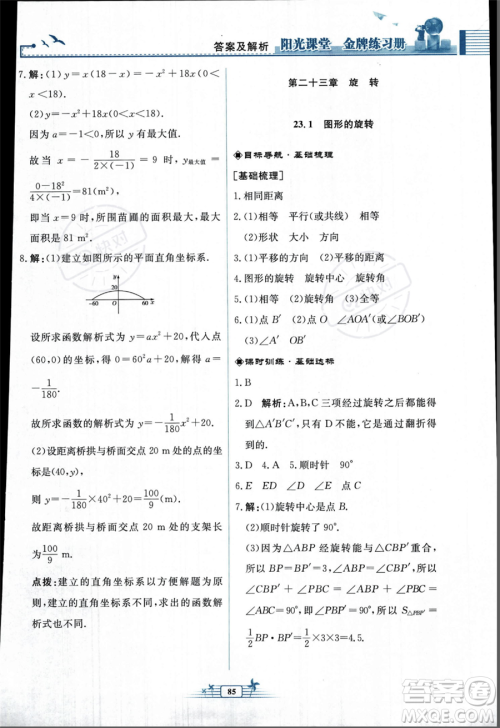 答案及解析 阳光课堂 金牌练习册
7.解:(1)y=x(18-x)=-x²+18x(m²).
(2)由(1)知,y=-x²+18x.
因为a=-1<0,所以y有最大值.
故当x=-18/(2×(-1))=9时,y最大值=
(0-18²)/(4×(-1))=81(m²),
即当x=9时,所围苗圃的面积最大,最
大面积是81 m².
8.解:(1)建立如图所示的平面直角坐标系.
y
20
-60 O 60 x
设所求函数解析式为y=ax²+20,代入点
(60,0)的坐标,得0=a·60²+20,解得a=
-1/180.
故所求函数解析式为y=-1/180x²+20.
(2)设距离桥拱与桥面交点20 m的点的坐
标为(40,y),
则y=-1/180×40²+20=100/9.
故距离桥拱与桥面交点20 m处的支架长
为100/9 m.
点拨:建立的直角坐标系不同,求出的函数
解析式也不同,此题建立的坐标系所求函数
解析式最简单.
第二十三章 旋 转
23.1 图形的旋转
目标导航·基础梳理
[基础梳理]
1.相同距离
2.(1)相等 平行(或共线) 相等
(2)形状 大小 方向
3.(1)平移的方向 (2)平移的距离
4.图形的旋转 旋转中心 旋转角
5.(1)相等 (2)旋转角 (3)全等
6.(1)点B′ (2)OB′ ∠AOA′ (3)点O
(4)∠A′ OB′
课时训练·基础达标
1.B
2.D 解析:A、B、C三项经过旋转都能得
到△A′B′C′,只有D项是通过翻折得
到的.
3.D 4.A 5.顺时针 90°
6.ED ∠E ∠D
7.解:(1)旋转中心是点B.
(2)顺时针旋转了90°.
(3)因为△ABP与△CBP′重合,
所以BP=BP′=3,∠ABP=∠CBP′.
因为∠ABP+∠CBP=90°,所以
∠CBP′+∠CBP=90°,
即∠PBP′=90°,所以S△PBP′=
1/2BP·BP′=1/2×3×3=9/2.
85